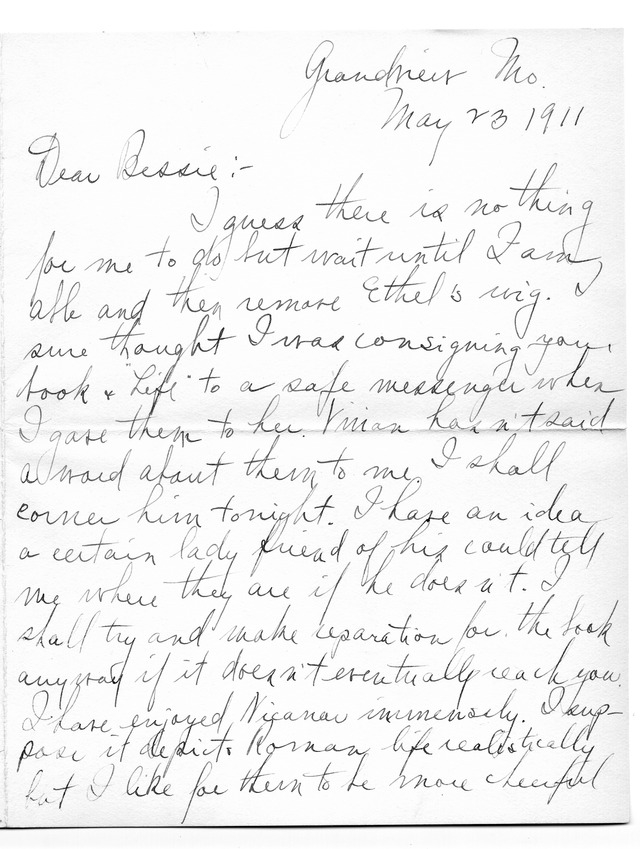 Grandview Mo.
May 23 1911
Dear Bessie:-
I guess there is nothing
for me to do but wait until I am
able and then remove Ethel's wig. I
sure thought I was consigning your
book & "Life" to a safe messenger when
I gave them to her. Vivian hasn't said
a word about them to me I shall
corner him tonight. I have an idea
a certain lady friend of his could tell
me where they are if he doesn't. I
shall try and make reparation for the book
anyway if it doesn't eventually reach you.
I have enjoyed immensely. I sup-
pose it depicts Roman life realistically
but I like for them to be more cheerful